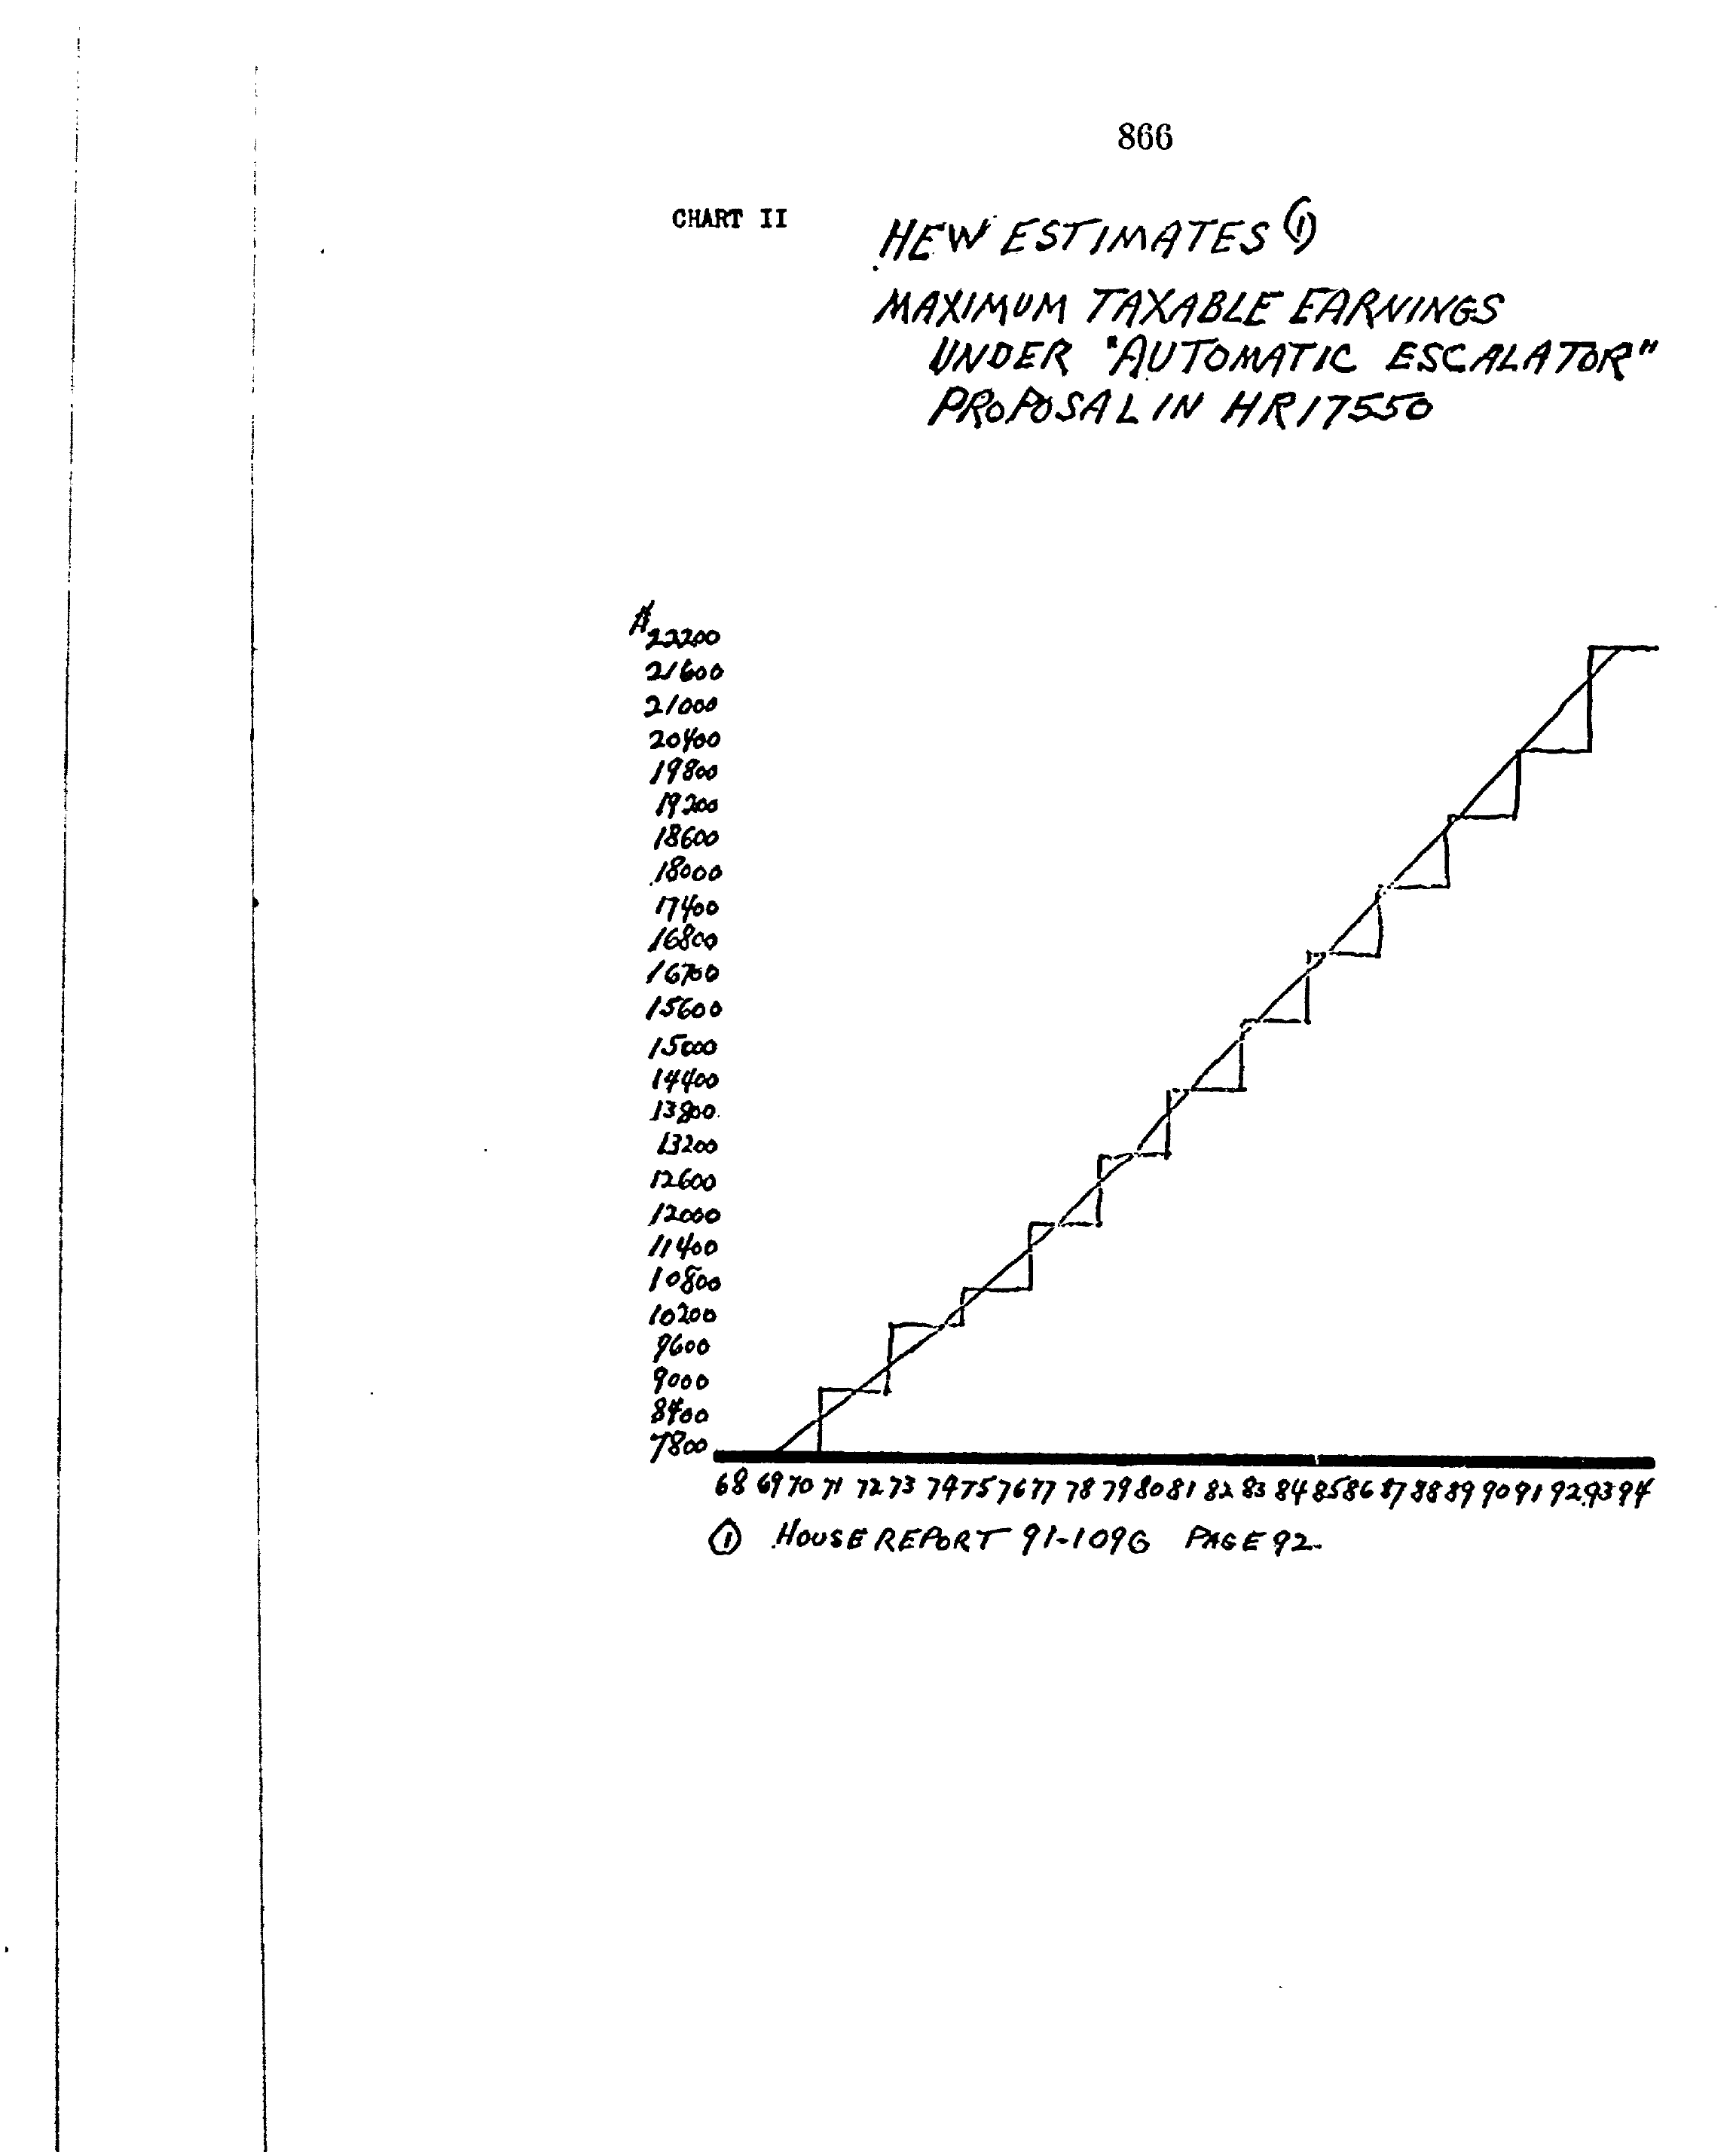 866
CHART II
HEW ESTIMATES ①
MAXIMUM TAXABLE EARNINGS
UNDER "AUTOMATIC ESCALATOR"
PROPOSAL IN HR17550
$
22200
21600
21000
20400
19800
19200
18600
18000
17400
16800
16700
15600
15000
14400
13800
13200
12600
12000
11400
10800
10200
9600
9000
8400
7800
68 69 70 71 72 73 74 75 76 77 78 79 80 81 82 83 84 85 86 87 88 89 90 91 92 93 94
① HOUSE REPORT 91-1096 PAGE 92